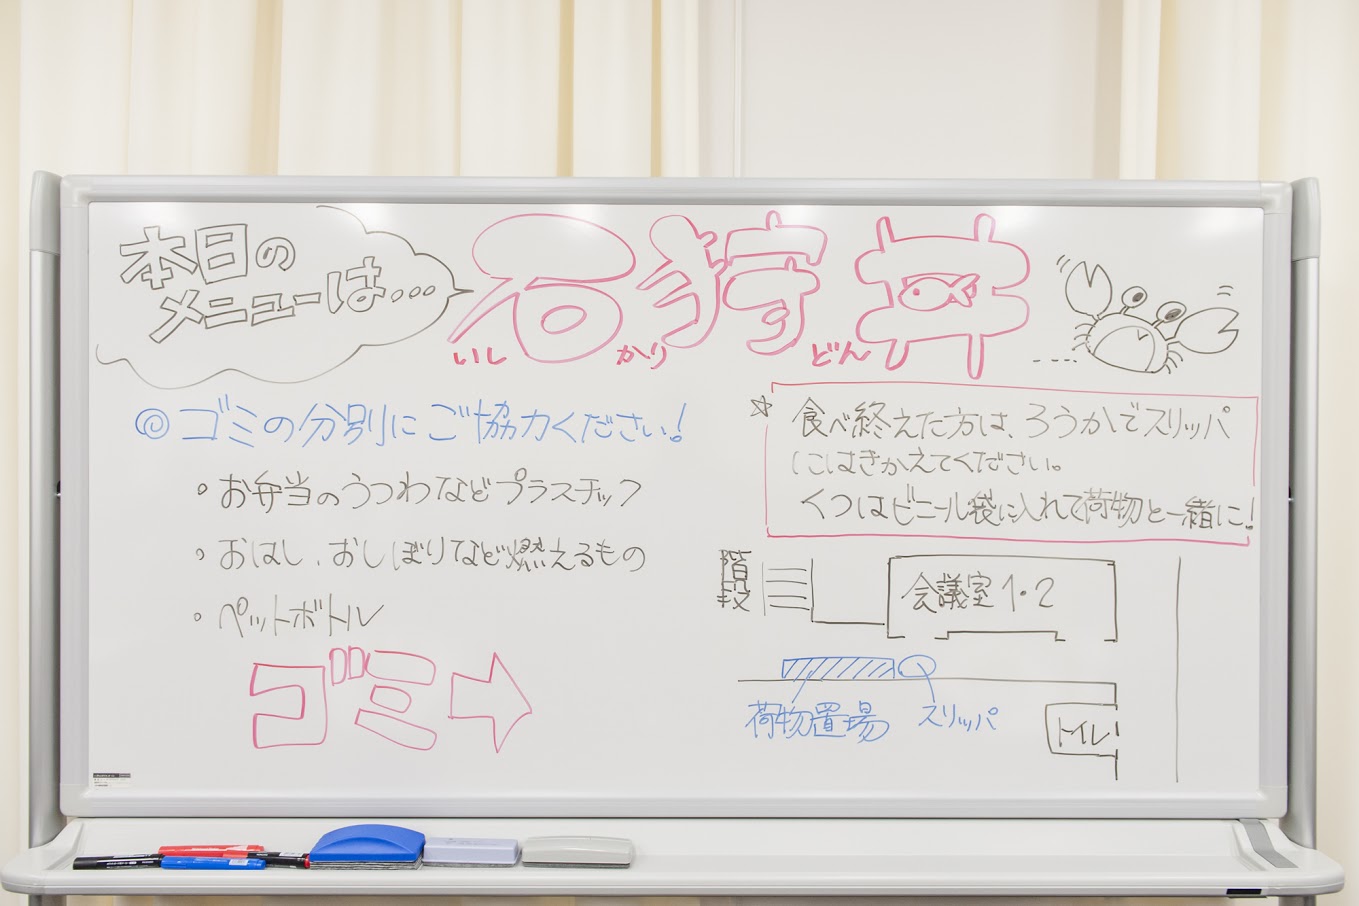 本日の
メニューは…
石狩丼
いしかりどん
◎ゴミの分別にご協力ください!
・お弁当のうつわなどプラスチック
・おはし、おしぼりなど燃えるもの
・ペットボトル
ゴミ→
☆食べ終えた方は、ろうかでスリッパ
にはきかえてください。
くつはビニール袋に入れて荷物と一緒に!
階段
会議室1・2
荷物置場
スリッパ
トイレ